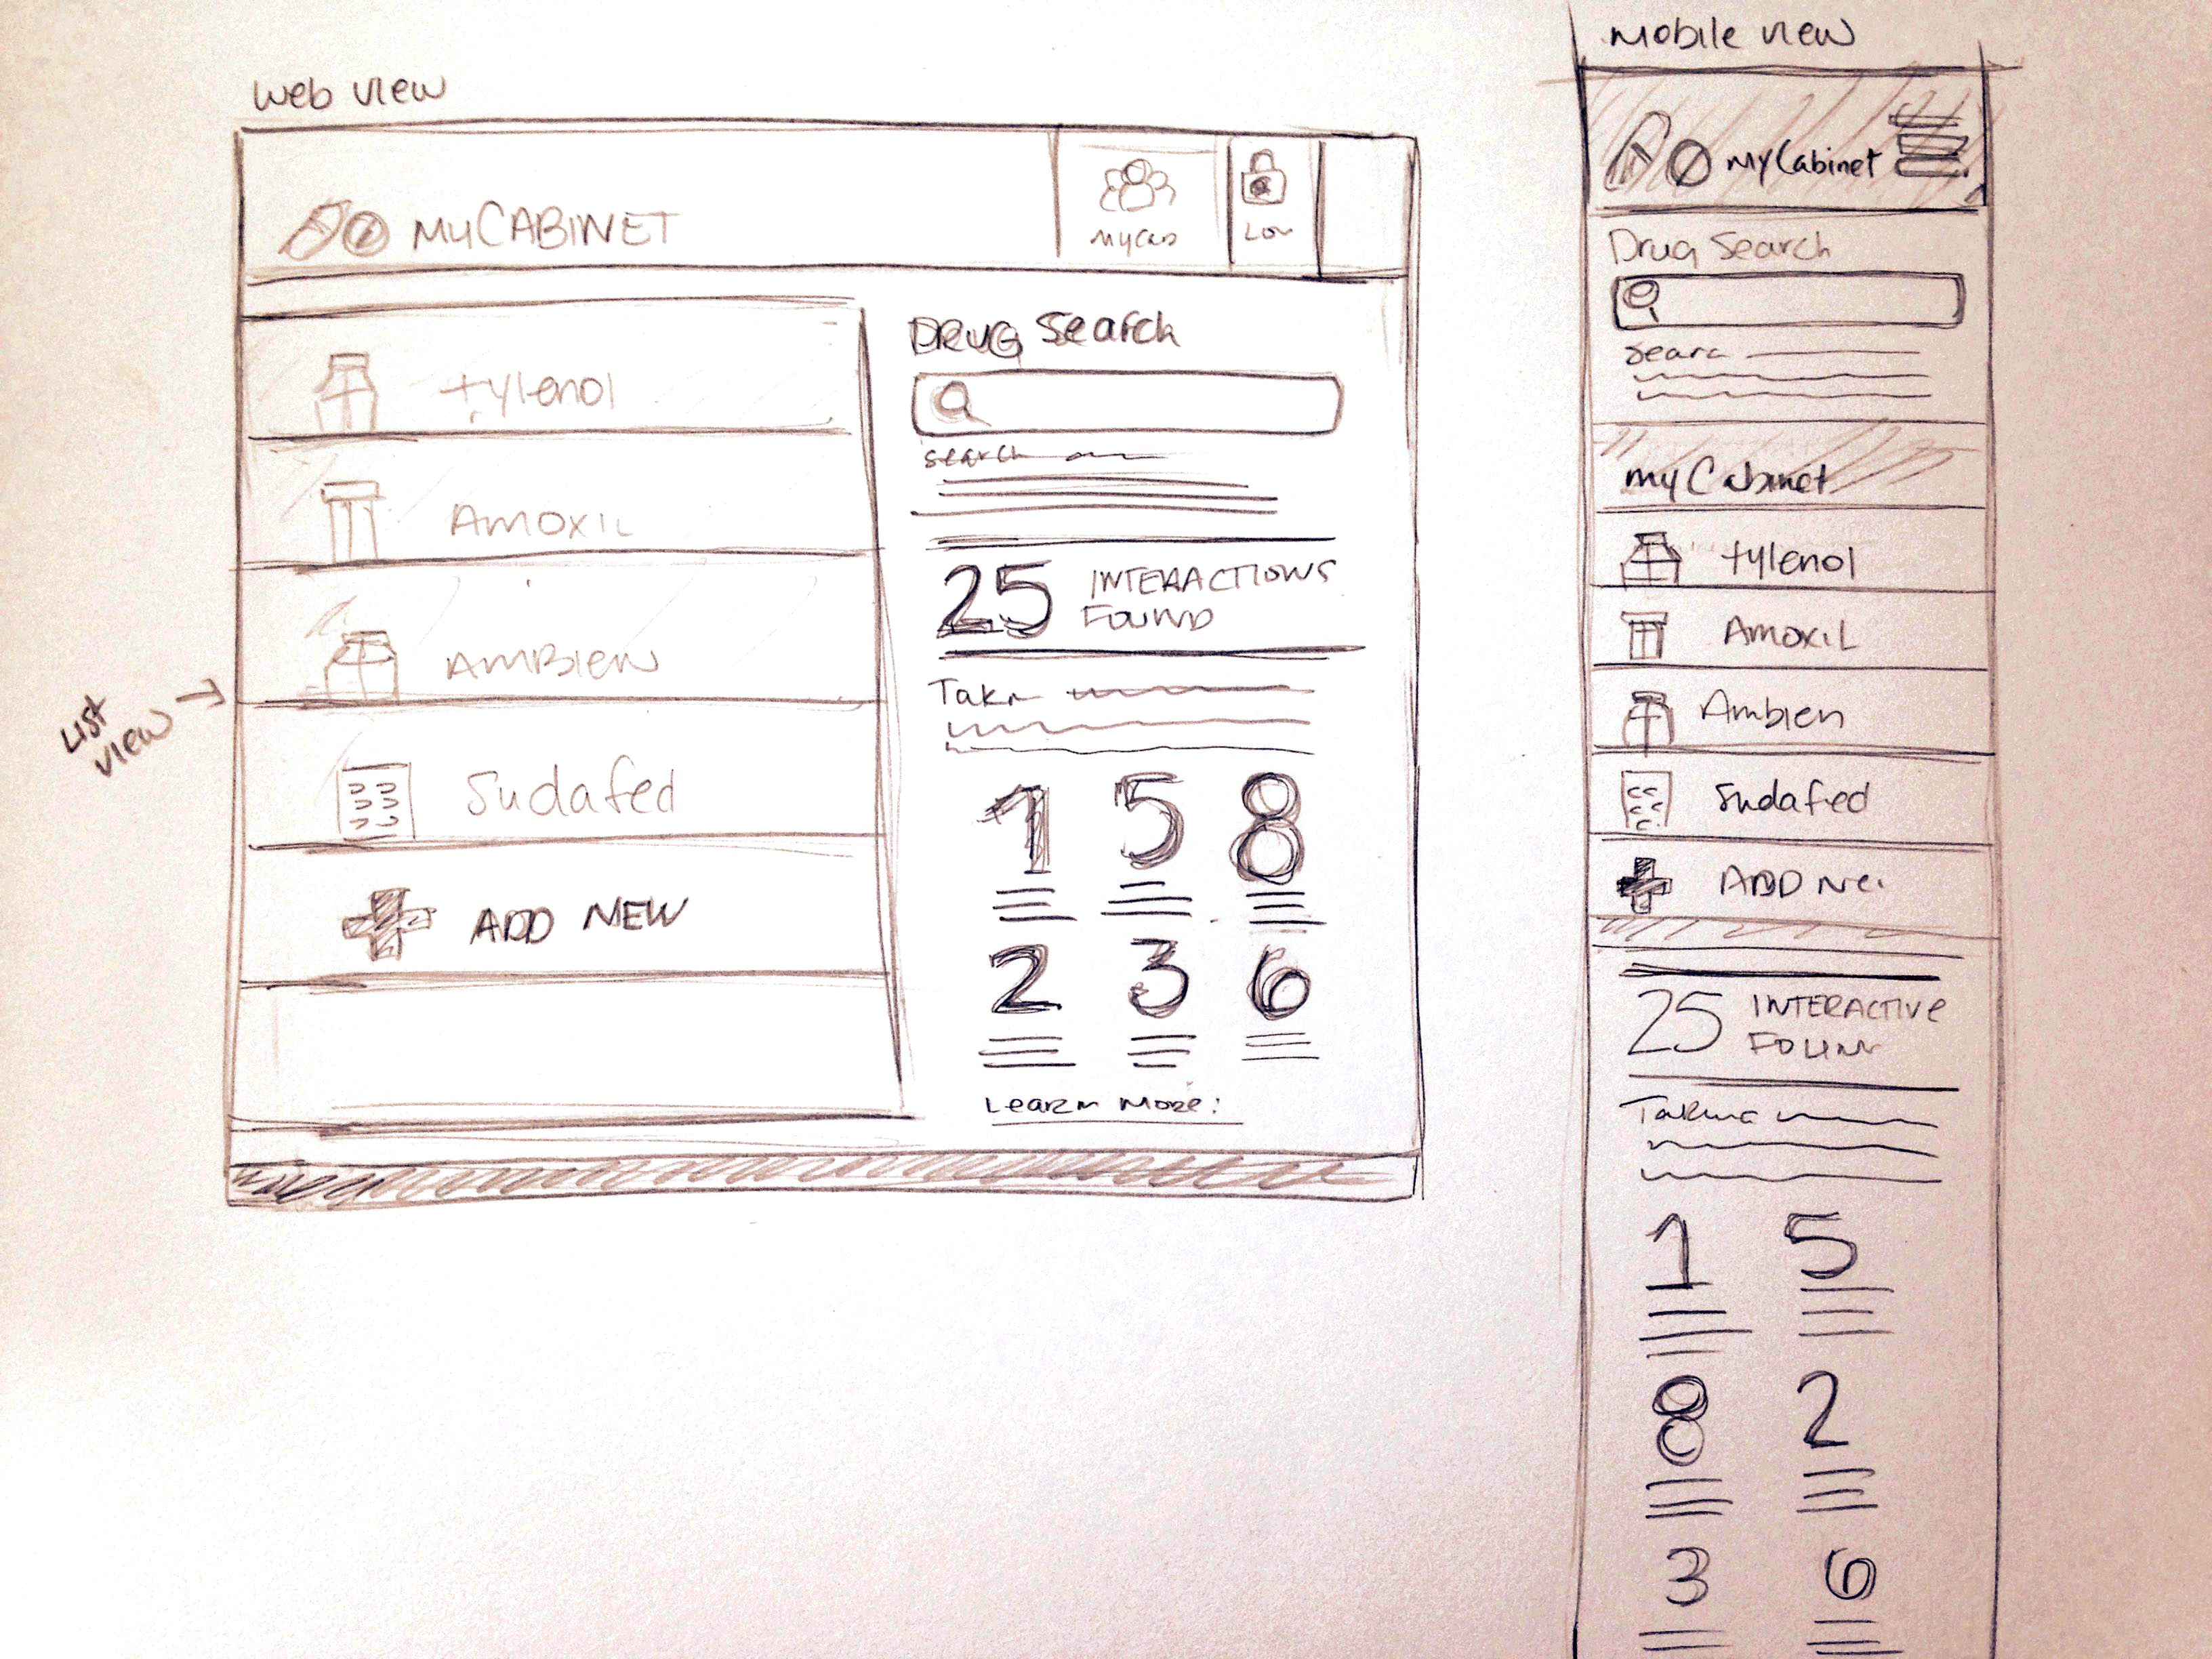 Web view
MyCABINET
List
view
tylenol
AMOXIL
AMBIEN
Sudafed
ADD NEW
DRUG Search
Search
25 INTERACTIONS
FOUND
1 5 8
2 3 6
Learn More:
Mobile view
MyCabinet
Drug Search
myCabinet
tylenol
AMOXIL
Ambien
Sudafed
ADD
25 INTERACTIVE
1 5
8 2
3 6